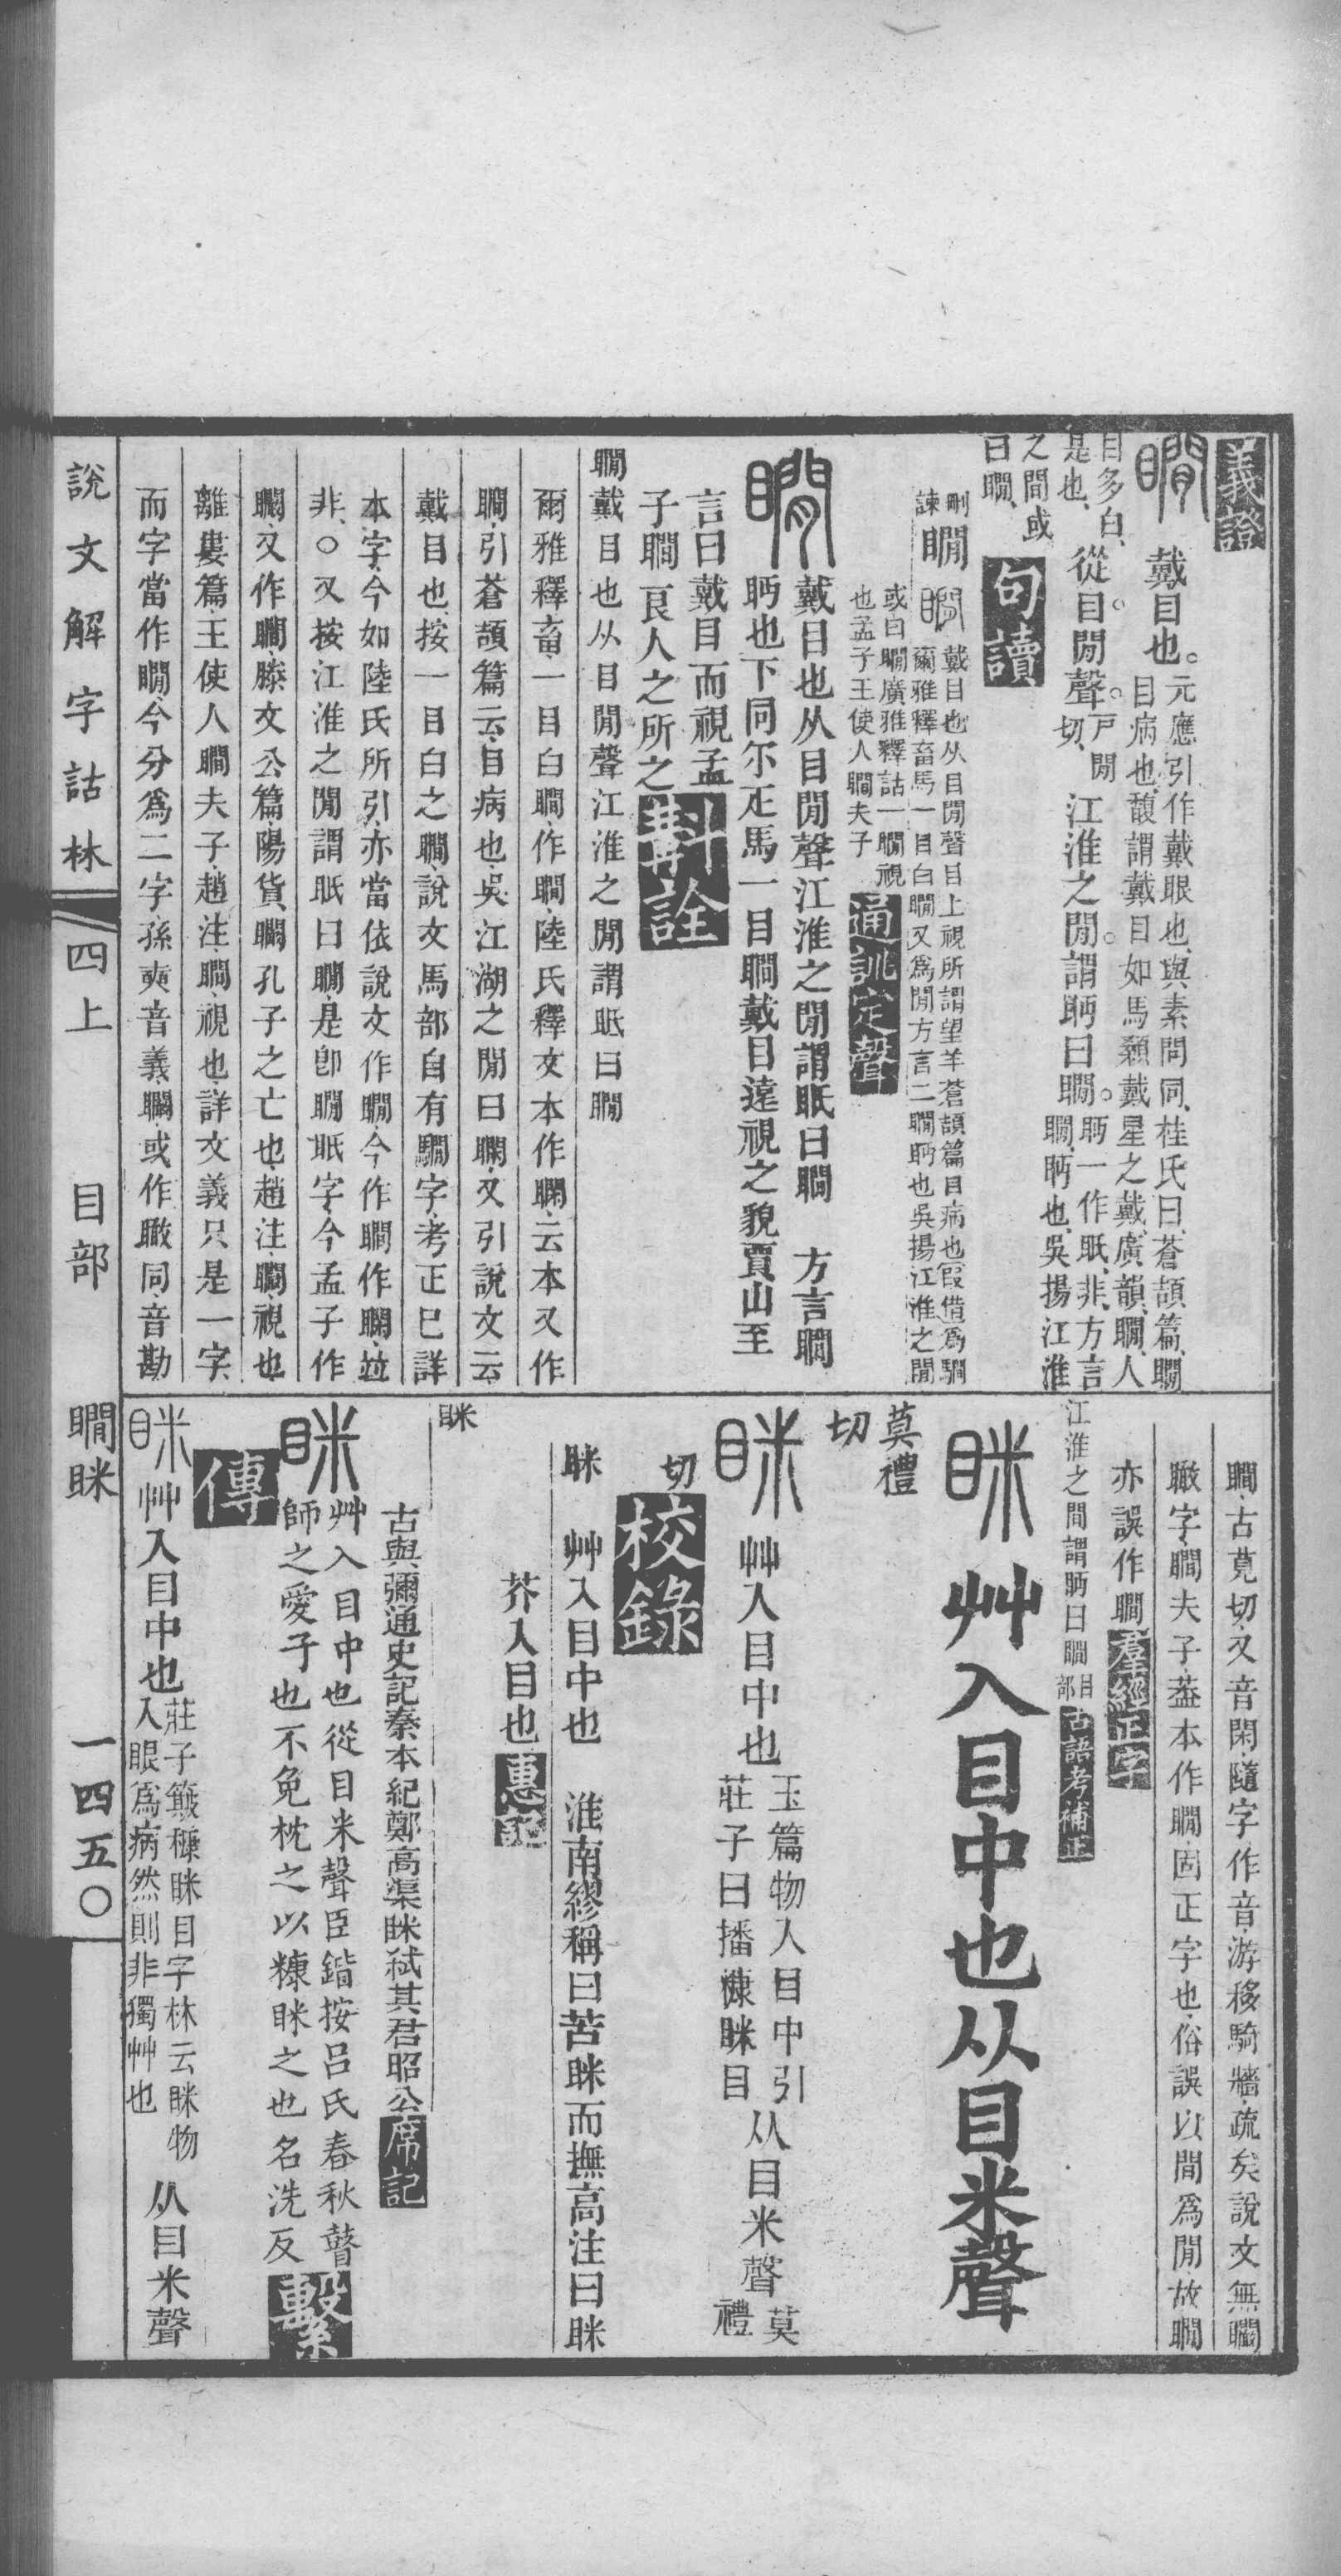 義證
瞯 戴目也。元應引作戴眼也、與素問同、桂氏曰、蒼頡篇、瞯
目病也、馥謂戴目如馬顙戴星之戴、廣韻、瞯、人
目多白、
是也、從目閒聲。戸閒
切、江淮之閒。謂眄曰瞯。眄一作眂、非、方言
瞯、眄也、吳揚江淮
之間或
曰瞯、
句讀
刪
諫
瞯 瞯 戴目也从目閒聲目上視所謂望羊蒼頡篇目病也叚借爲騆
爾雅釋畜馬一目白瞯又爲閒方言二瞯眄也吳揚江淮之閒
或曰瞯廣雅釋詁一瞯視
也孟子王使人瞯夫子
通訓定聲
瞯 戴目也从目閒聲江淮之閒謂眂曰瞯 方言瞯
眄也下同尒疋馬一目瞯戴目遠視之貌賈山至
言曰戴目而視孟
子瞯良人之所之
斠詮
瞯戴目也从目閒聲江淮之閒謂眂曰瞯
爾雅釋畜、一目白瞯、作瞯、陸氏釋文本作瞷、云本又作
瞯、引蒼頡篇云、目病也、吳江湖之閒曰瞷、又引說文云、
戴目也、按一目白之瞯、說文馬部自有騆字、考正已詳
本字、今如陸氏所引、亦當依說文作瞯、今作瞯作瞷、竝
非、○又按江淮之閒謂眂曰瞯、是卽瞯眂字、今孟子作
瞷、又作瞯、滕文公篇、陽貨瞷孔子之亡也、趙注、瞯、視也、
離婁篇、王使人瞯夫子、趙注、瞯、視也、詳文義只是一字、
而字當作瞯、今分爲二字、孫奭音義、瞷、或作瞰同、音勘、
瞯、古莧切、又音閑、隨字作音、游移騎牆、疏矣、說文無瞷
瞰字、瞯夫子、葢本作瞯、固正字也、俗誤以間爲閒、故瞯
亦誤作瞯、
羣經正字
江淮之間謂眄曰瞯 目
部 古語考補正
眯 艸入目中也从目米聲
莫禮
切
眯 艸入目中也 玉篇物入目中引
莊子曰播糠眯目 从目米聲 莫
禮
切
校錄
眯 艸入目中也 淮南繆稱曰苦眯而撫高注曰眯
芥入目也
惠記
眯
古與彌通史記秦本紀鄭高渠眯弒其君昭公
席記
眯 艸入目中也從目米聲臣鍇按呂氏春秋瞽
師之愛子也不免枕之以糠眯之也名洗反
繫
傳
眯 艸入目中也 莊子簸穅眯目字林云眯物
入眼爲病然則非獨艸也 从目米聲
說文解字詁林 四上 目部 瞯眯 一四五〇